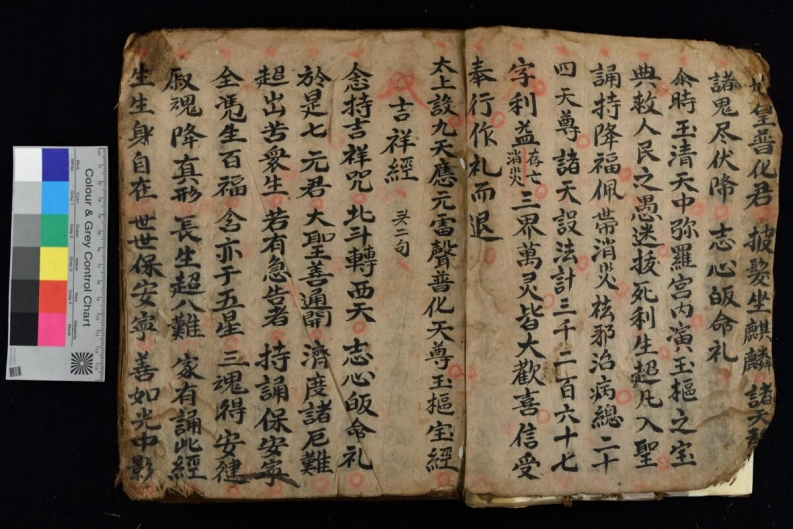 皇普化君 披髮坐麒麟 諸天
諸鬼尽伏降 志心皈命礼
尒時玉清天中弥羅宮内演玉樞之宝
典救人民之愚迷拔死利生超凡入聖
誦持降福佩带消災袪邪治病總二十
四天尊諸天設法計三千二百六十七
字利益存亡消災三界萬灵皆大歡喜信受
奉行作礼而退
太上説九天應元雷聲普化天尊玉樞宝經
吉祥經 二句
念持吉祥咒 北斗轉西天 志心皈命礼
於是七元君 大聖善通開 濟度諸厄難
超出苦衆生 若有急告者 持誦保安寧
全凴生百福 含亦于五星 三魂得安健
厰魂降真形 長生超八難 家有誦此經
生生身自在 世世保安寧 善如光中影
Colour & Grey Control Chart